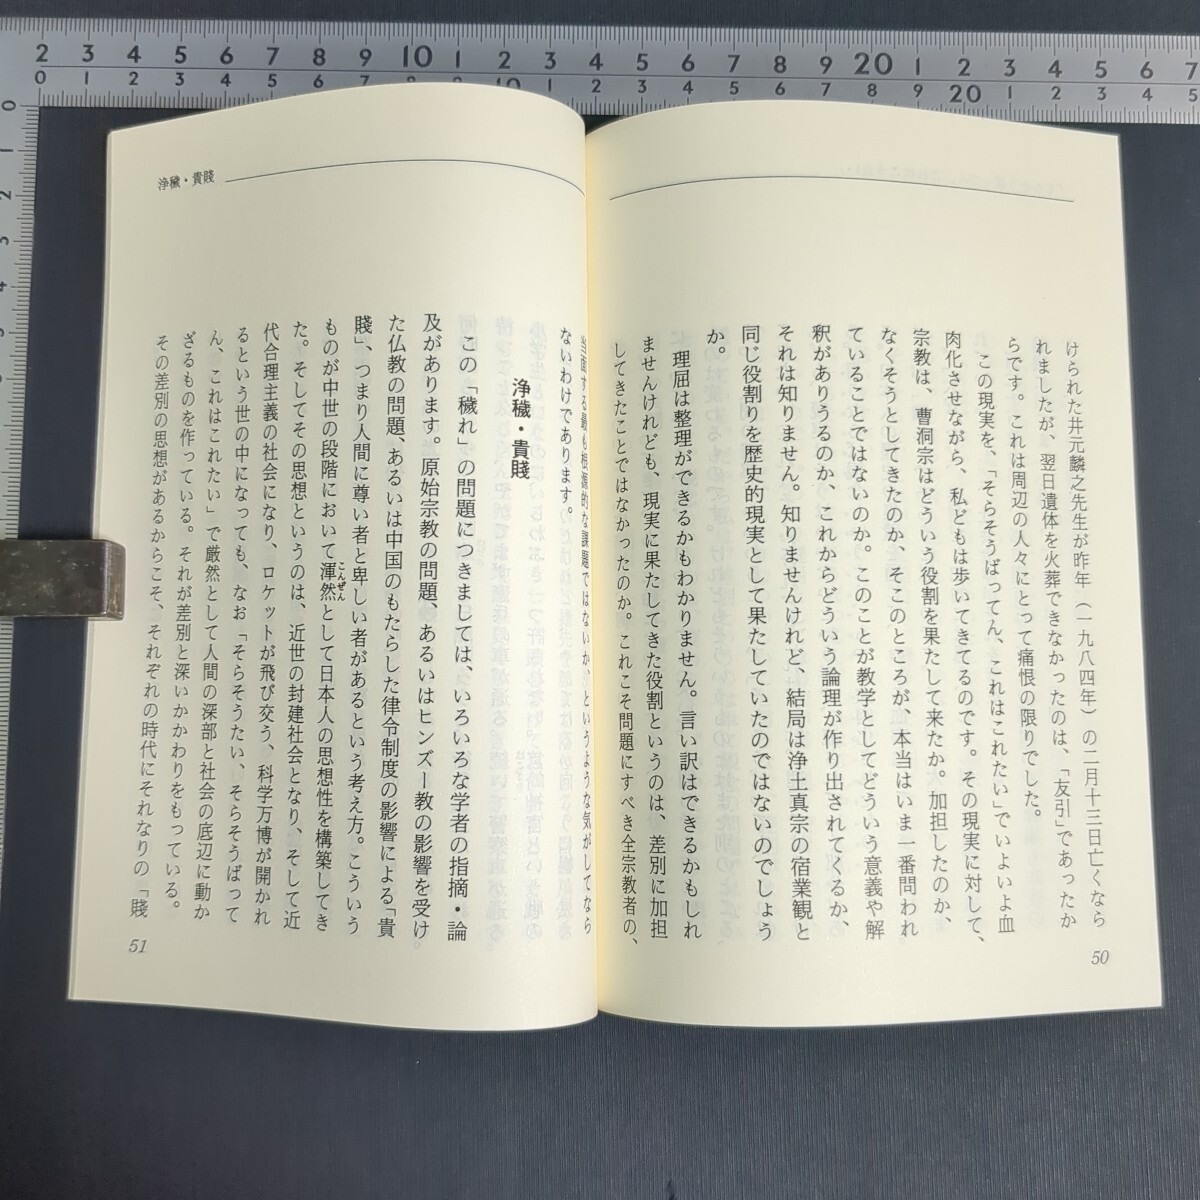 けられた井元麟之先生が昨年（一九八四年）の二月十三日亡くなら
れましたが、翌日遺体を火葬できなかったのは、「友引」であったか
らです。これは周辺の人々にとって痛恨の限りでした。
この現実を、「そらそうばってん、これはこれたい」でいよいよ血
肉化させながら、私どもは歩いてきてるのです。その現実に対して、
宗教は、曹洞宗はどういう役割を果たして来たか。加担したのか、
なくそうとしてきたのか、そこのところが、本当はいま一番問われ
ていることではないのか。このことが教学としてどういう意義や解
釈がありうるのか、これからどういう論理が作り出されてくるか、
それは知りません。知りませんけれど、結局は浄土真宗の宿業観と
同じ役割りを歴史的現実として果たしていたのではないのでしょう
か。
理屈は整理ができるかもわかりません。言い訳はできるかもしれ
ませんけれども、現実に果たしてきた役割というのは、差別に加担
してきたことではなかったのか。これこそ問題にすべき全宗教者の、
50
浄穢・貴賤
当面する最も根源的な課題ではないか、というような気がしてなら
ないわけであります。
浄穢・貴賤
この「穢れ」の問題につきましては、いろいろな学者の指摘・論
及があります。原始宗教の問題、あるいはヒンズー教の影響を受け
た仏教の問題、あるいは中国のもたらした律令制度の影響による「貴
賤」、つまり人間に尊い者と卑しい者があるという考え方。こういう
ものが中世の段階において渾然（こんぜん）として日本人の思想性を構築してき
た。そしてその思想というのは、近世の封建社会となり、そして近
代合理主義の社会になり、ロケットが飛び交う、科学万博が開かれ
るという世の中になっても、なお「そらそうたい、そらそうばって
ん、これはこれたい」で厳然として人間の深部と社会の底辺に動か
ざるものを作っている。それが差別と深いかかわりをもっている。
その差別の思想があるからこそ、それぞれの時代にそれなりの「賤
51
2 3 4 5 6 7 8 9 10 1 2 3 4 5 6 7 8 9 20 1 2 3 4 5 6 7